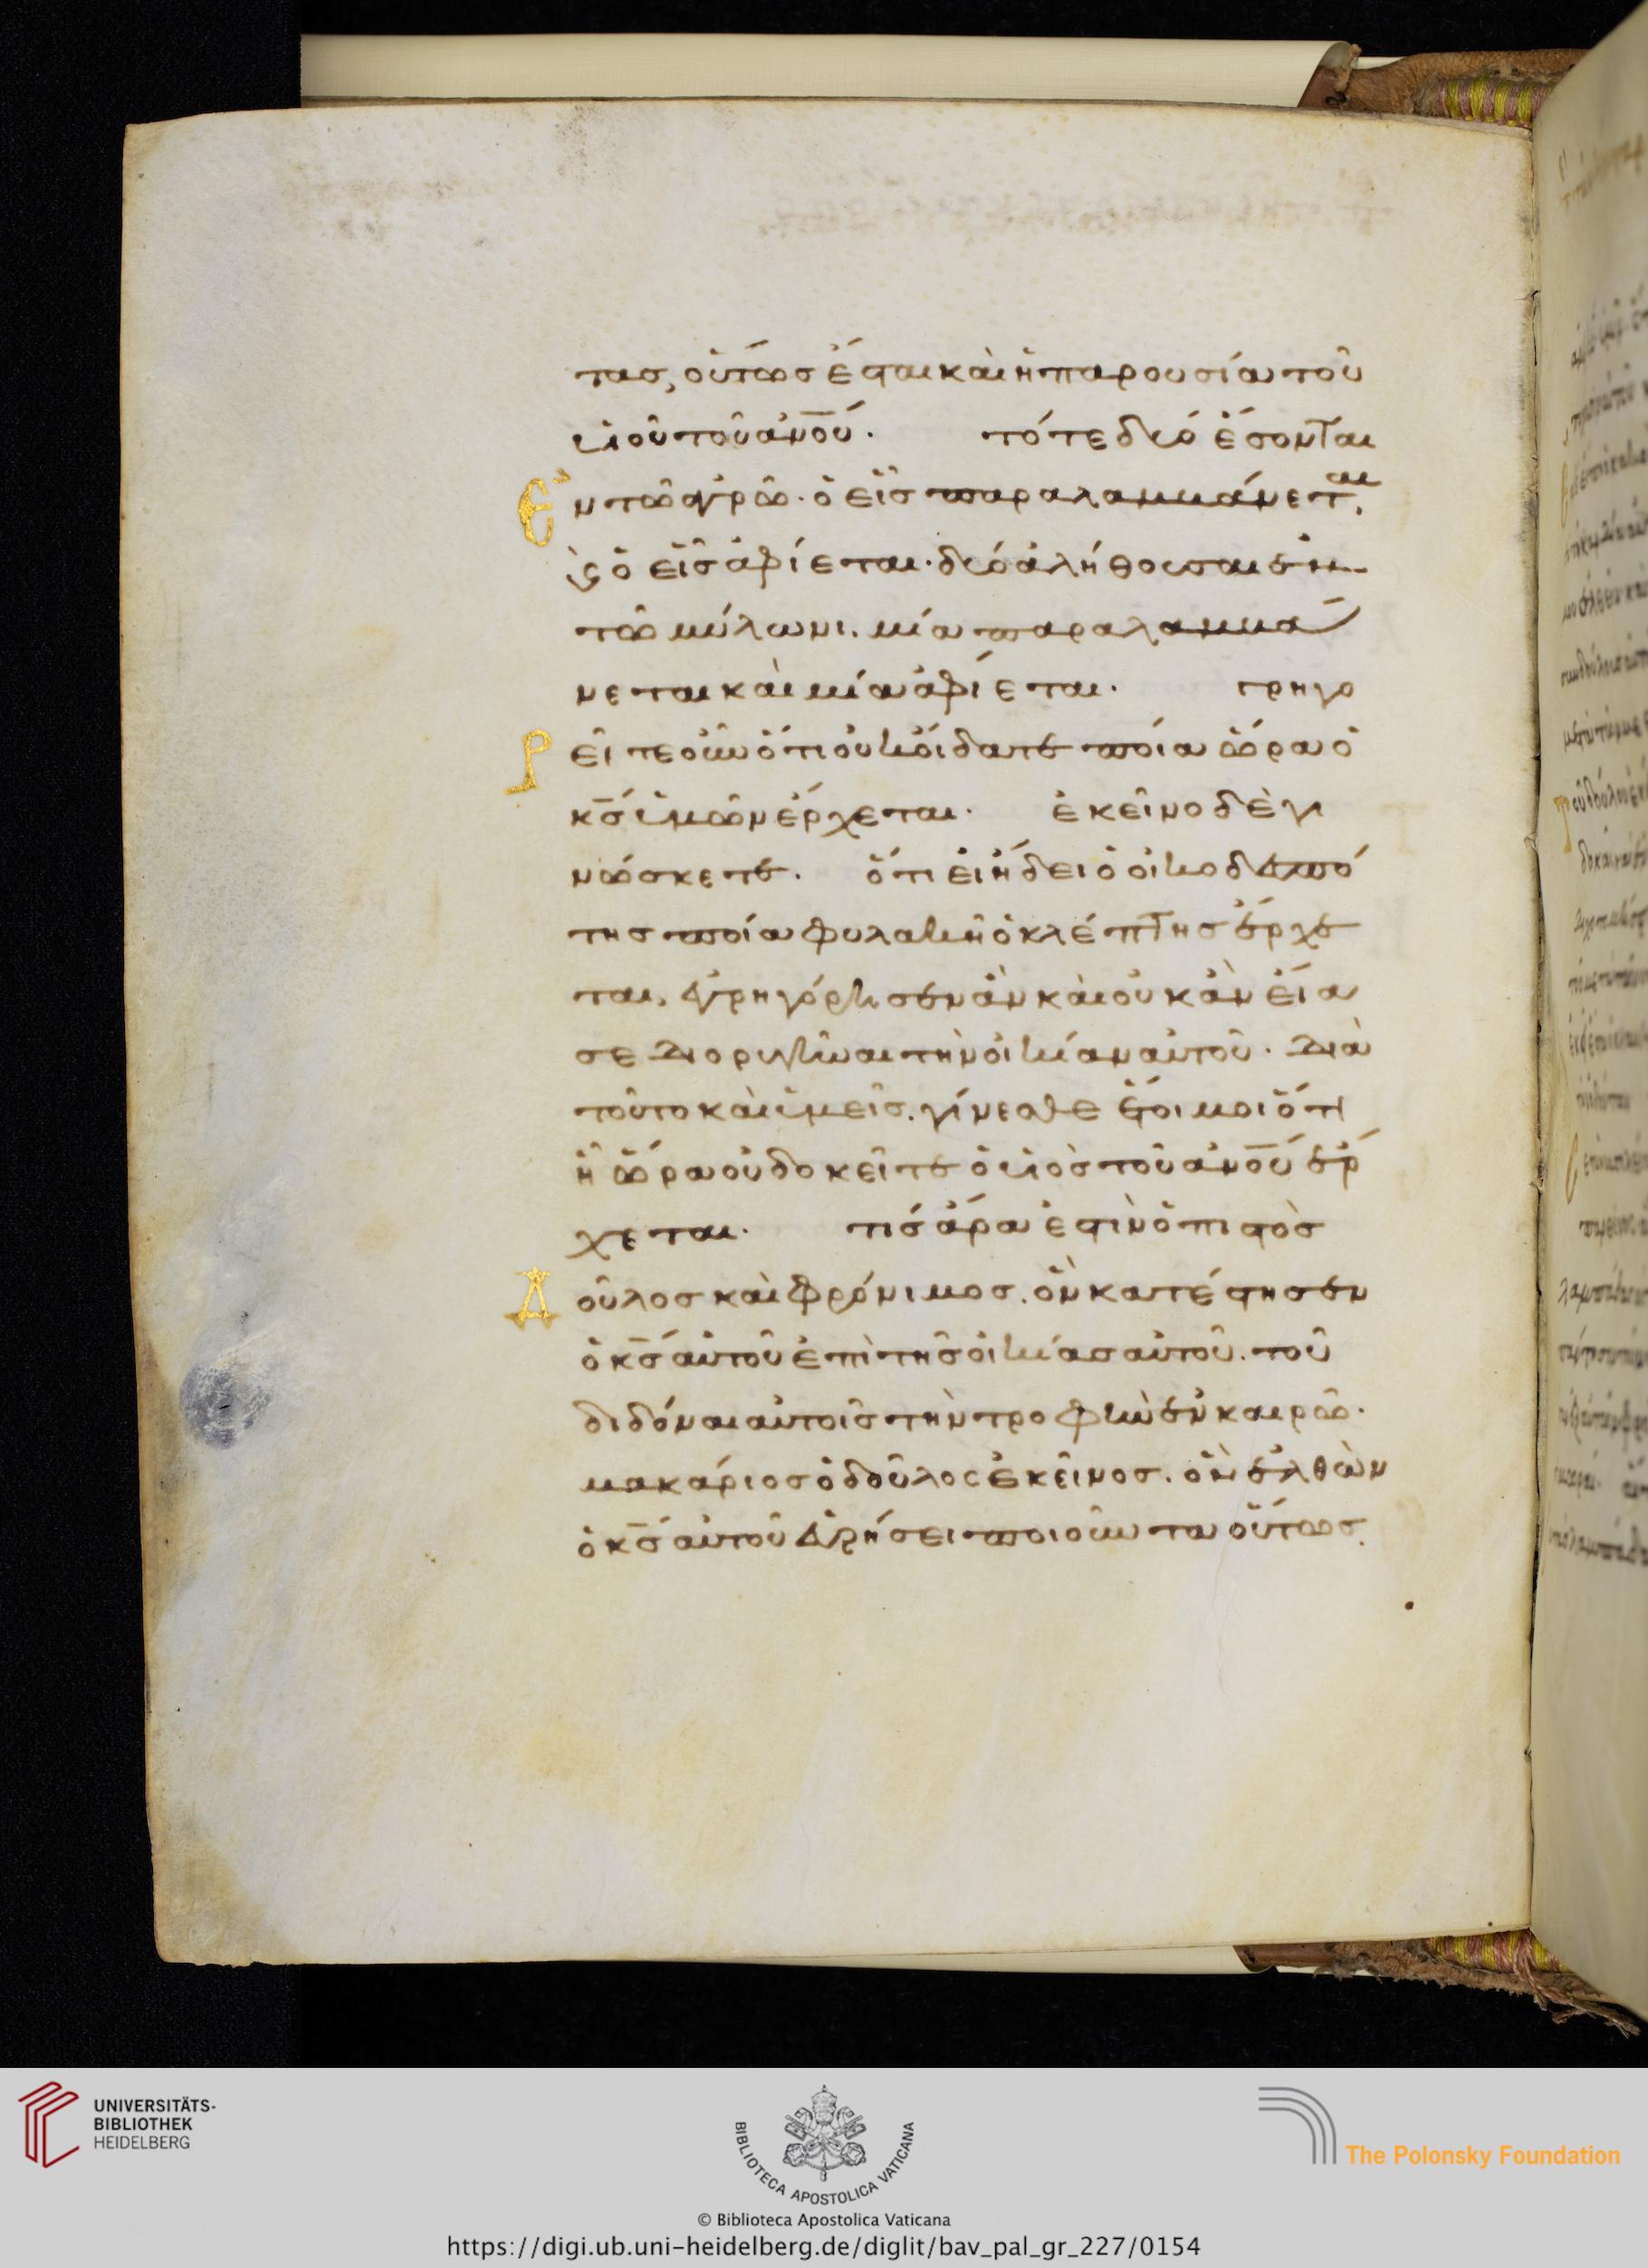 τας, οὕτως ἔσται καὶ ἡ παρουσία τοῦ
υἱοῦ τοῦ ἀν̅ο̅υ̅. τότε δύο ἔσονται
ἐν τῶ ἀγρῶ· ὁ εἷς παραλαμβάνεται,
ϗ ὁ εἷς ἀφίεται· δύο ἀλήθουσαι ἐν
τῶ μύλωνι. μία παραλαμβά
νεται καὶ μία ἀφίεται. γρηγο
ρεῖτε οὖν ὅτι οὐκ οἴδατε ποία ὥρα ὁ
κ̅ς̅ ὑμῶν ἔρχεται. ἐκεῖνο δὲ γι
νώσκετε. ὅτι εἰ ἤδει ὁ οἰκοδεσπό
της ποία φυλακῆ ὁ κλέπτης ἔρχε
ται, ἐγρηγόρησεν ἂν καὶ οὐκ ἂν εἴα
σε διορυγῆναι τὴν οἰκίαν αὐτοῦ. διὰ
τοῦτο καὶ ὑμεῖς. γίνεσθε ἕτοιμοι ὅτι
ἧ ὥρα οὐ δοκεῖτε ὁ υἱὸς τοῦ ἀν̅ο̅υ̅ ἔρ
χεται. τίς ἄρα ἐστὶν ὁ πιστὸς
Δοῦλος καὶ φρόνιμος. ὃν κατέστησεν
ὁ κ̅ς̅ αὐτοῦ ἐπὶ τῆς οἰκίας αὐτοῦ. τοῦ
διδόναι αὐτοῖς τὴν τροφὴν ἐν καιρῶ.
μακάριος ὁ δοῦλος ἐκεῖνος. ὃν ἐλθὼν
ὁ κ̅ς̅ αὐτοῦ εὑρήσει ποιοῦντα οὕτως.
UNIVERSITÄTS-
BIBLIOTHEK
HEIDELBERG
BIBLIOTECA APOSTOLICA VATICANA
The Polonsky Foundation
© Biblioteca Apostolica Vaticana
https://digi.ub.uni-heidelberg.de/diglit/bav_pal_gr_227/0154